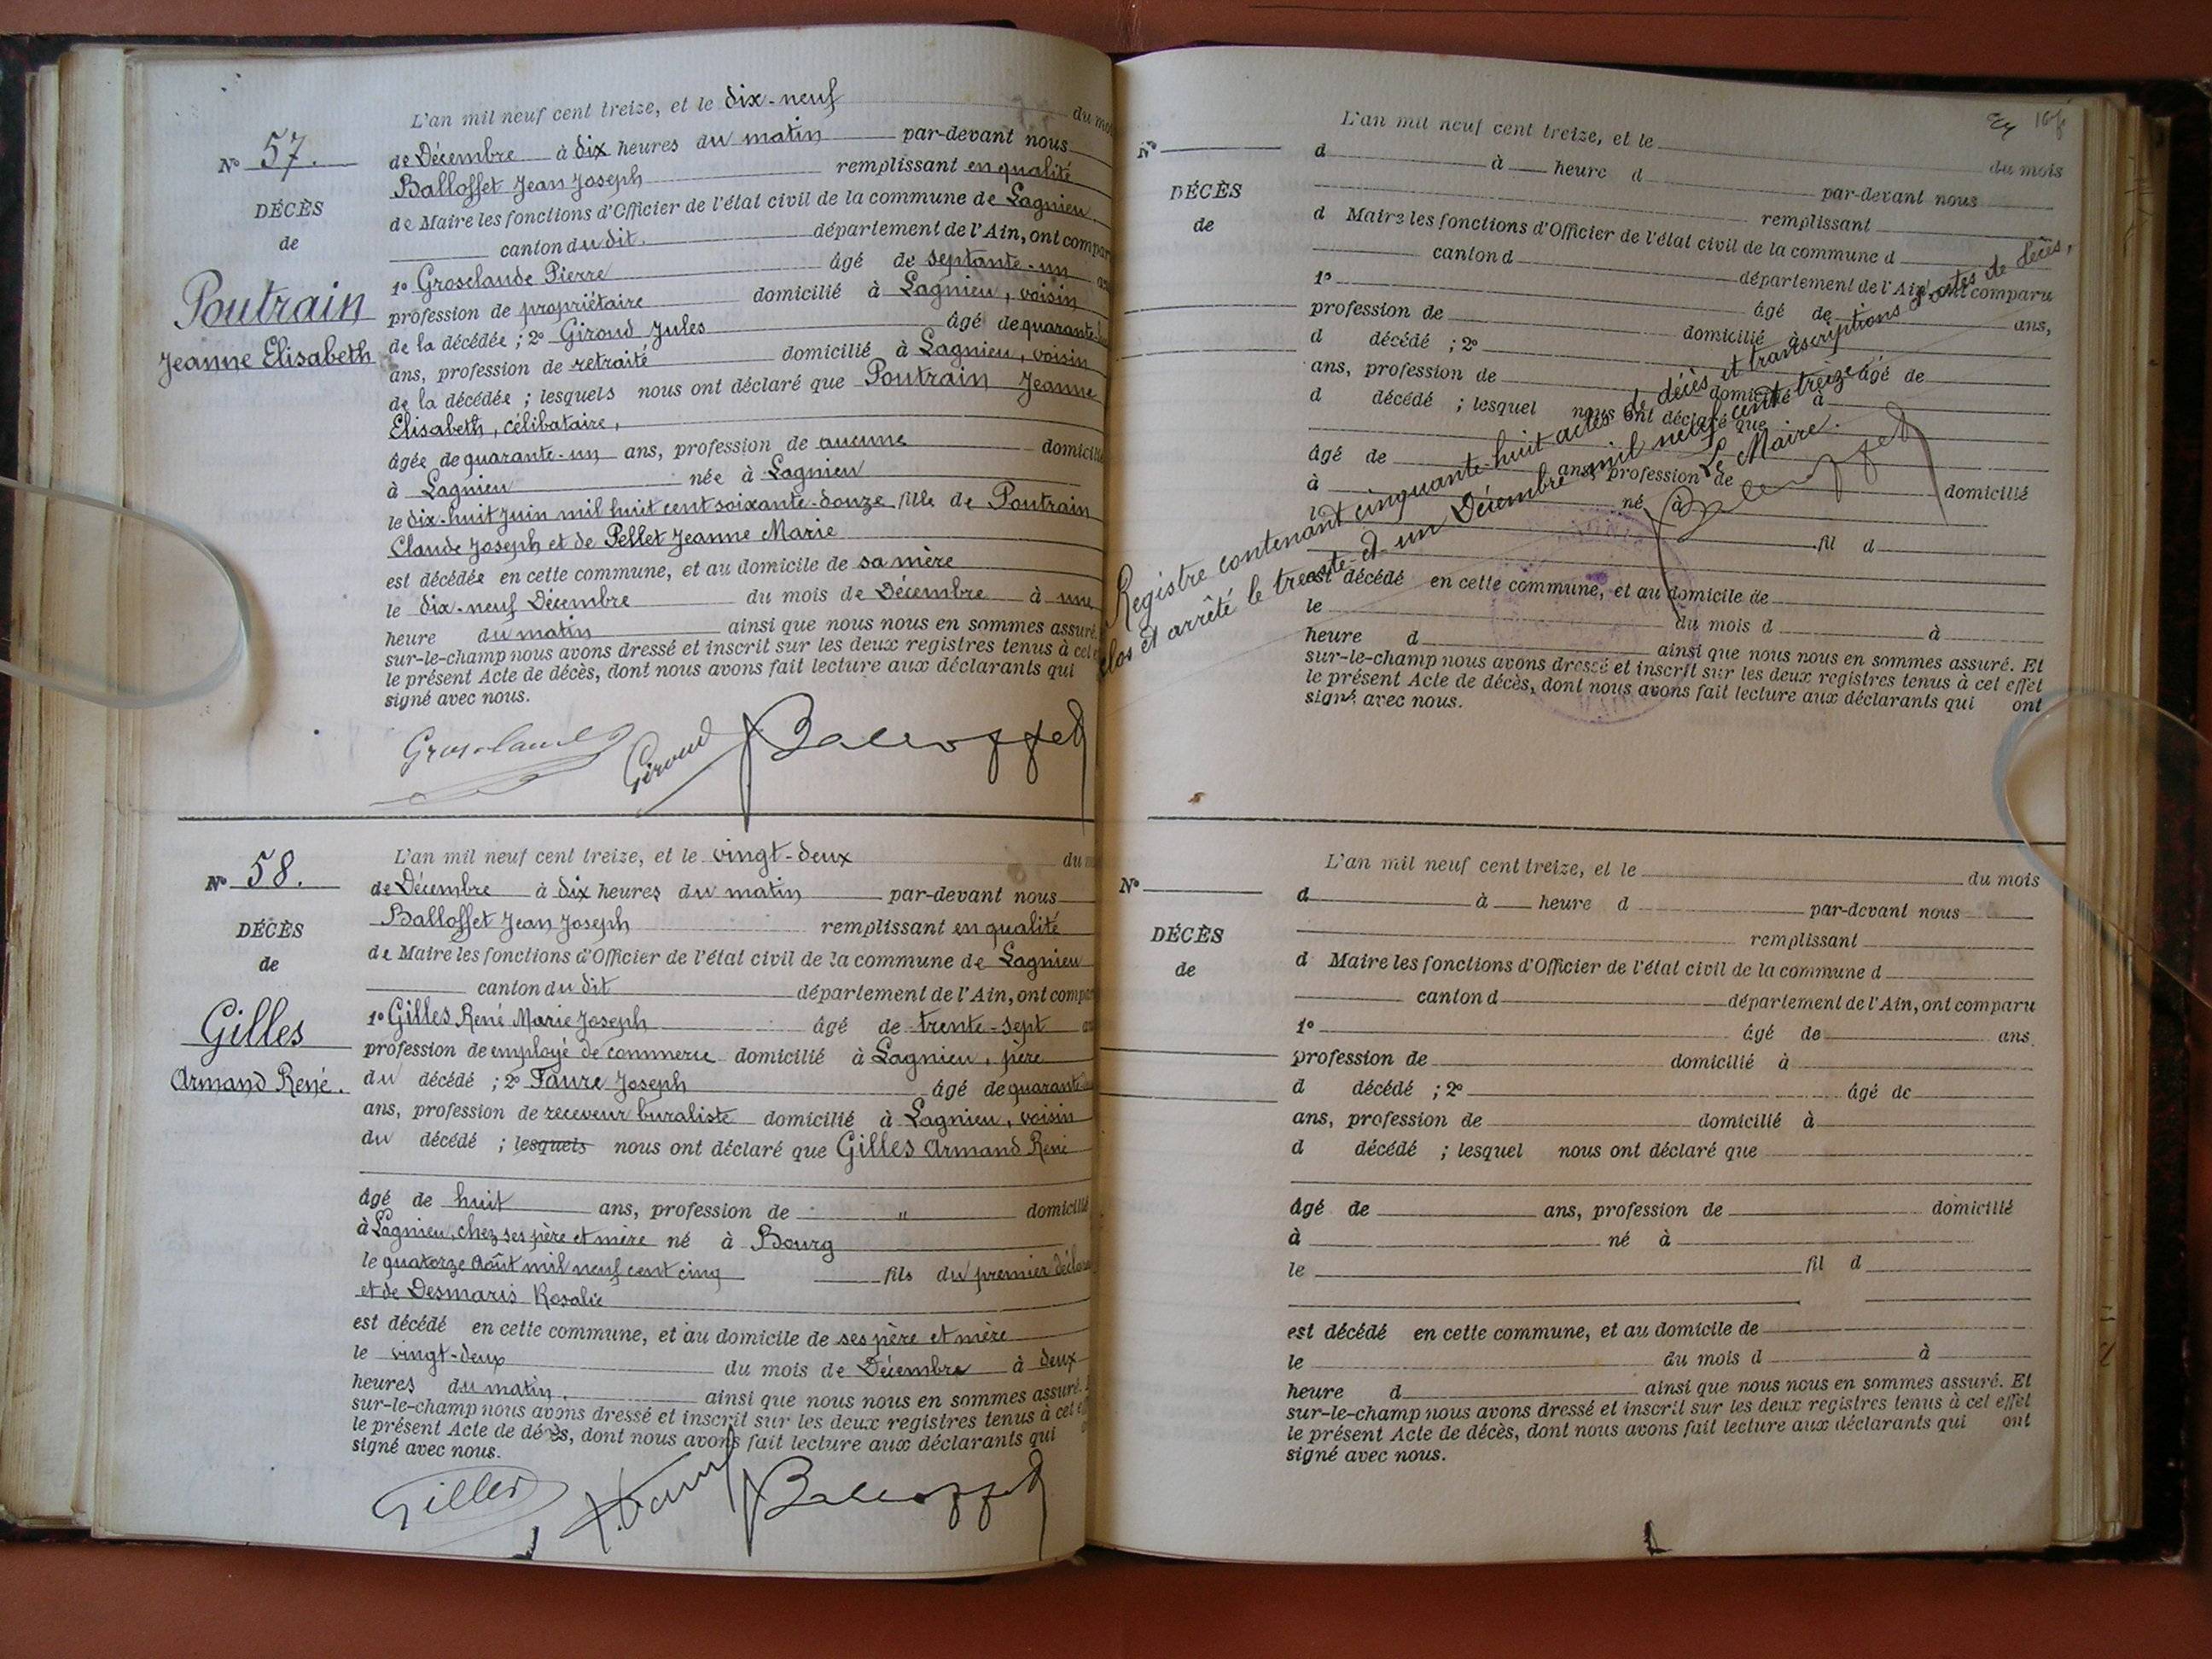 L'an mil neuf cent treize, et le dix-neuf du mois
N° 57.
de Décembre à dix heures du matin par-devant nous
Balloffet Jean Joseph remplissant en qualité
DÉCÈS
de Maire les fonctions d'Officier de l'état civil de la commune de Lagnieu
de
canton du dit département de l'Ain, ont compar
1° Grosclaude Pierre âgé de septante-un
Poutrain
profession de propriétaire domicilié à Lagnieu, voisin
de la décédée ; 2° Giroud Jules âgé de quarante
Jeanne Elisabeth
ans, profession de retraité domicilié à Lagnieu, voisin
de la décédée ; lesquels nous ont déclaré que Poutrain Jeanne
Elisabeth, célibataire,
âgée de quarante-un ans, profession de aucune domicilié
à Lagnieu née à Lagnieu
le dix-huit Juin mil huit cent soixante-douze fille de Poutrain
Claude Joseph et de Pellet Jeanne Marie
est décédée en cette commune, et au domicile de sa mère
le dix-neuf Décembre du mois de Décembre à une
heure du matin ainsi que nous nous en sommes assuré.
sur-le-champ nous avons dressé et inscrit sur les deux registres tenus à cet
le présent Acte de décès, dont nous avons fait lecture aux déclarants qui
signé avec nous.
Grosclaude Giroud Balloffet
L'an mil neuf cent treize, et le vingt-deux du
N° 58.
de Décembre à dix heures du matin par-devant nous
Balloffet Jean Joseph remplissant en qualité
DÉCÈS
de Maire les fonctions d'Officier de l'état civil de la commune de Lagnieu
de
canton du dit département de l'Ain, ont compar
1° Gilles René Marie Joseph âgé de trente-sept
Gilles
profession de employé de commerce domicilié à Lagnieu, père
Armand René.
du décédé ; 2° Faure Joseph âgé de quarante
ans, profession de receveur buraliste domicilié à Lagnieu, voisin
du décédé ; lesquels nous ont déclaré que Gilles Armand René
âgé de huit ans, profession de " domicilié
à Lagnieu, chez ses père et mère né à Bourg
le quatorze Août mil neuf cent cinq fils du premier déclara
et de Desmaris Rosalie
est décédé en cette commune, et au domicile de ses père et mère
le vingt-deux du mois de Décembre à deux
heures du matin. ainsi que nous nous en sommes assuré.
sur-le-champ nous avons dressé et inscrit sur les deux registres tenus à cet
le présent Acte de décès, dont nous avons fait lecture aux déclarants qui
signé avec nous.
Gilles J. Faure Balloffet
L'an mil neuf cent treize, et le du mois
N°
d à heure d par-devant nous
DÉCÈS
remplissant
de
d Maire les fonctions d'Officier de l'état civil de la commune d
canton d département de l'Ain, ont comparu
1° âgé de ans,
profession de domicilié à
d décédé ; 2° âgé de
ans, profession de domicilié à
d décédé ; lesquel nous ont déclaré que
âgé de ans, profession de domicilié
à né à
l fil d
est décédé en cette commune, et au domicile de
le du mois d à
heure d ainsi que nous nous en sommes assuré. Et
sur-le-champ nous avons dressé et inscrit sur les deux registres tenus à cet effet
le présent Acte de décès, dont nous avons fait lecture aux déclarants qui ont
signé avec nous.
Registre contenant cinquante-huit actes de décès et transcriptions d'actes de décès,
clos et arrêté le trente-et-un Décembre mil neuf cent treize
Le Maire.
Balloffet
L'an mil neuf cent treize, et le du mois
N°
d à heure d par-devant nous
DÉCÈS
remplissant
de
d Maire les fonctions d'Officier de l'état civil de la commune d
canton d département de l'Ain, ont comparu
1° âgé de ans.
profession de domicilié à
d décédé ; 2° âgé de
ans, profession de domicilié à
d décédé ; lesquel nous ont déclaré que
âgé de ans, profession de domicilié
à né à
le fil d
est décédé en cette commune, et au domicile de
le du mois d à
heure d ainsi que nous nous en sommes assuré. Et
sur-le-champ nous avons dressé et inscrit sur les deux registres tenus à cet effet
le présent Acte de décès, dont nous avons fait lecture aux déclarants qui ont
signé avec nous.